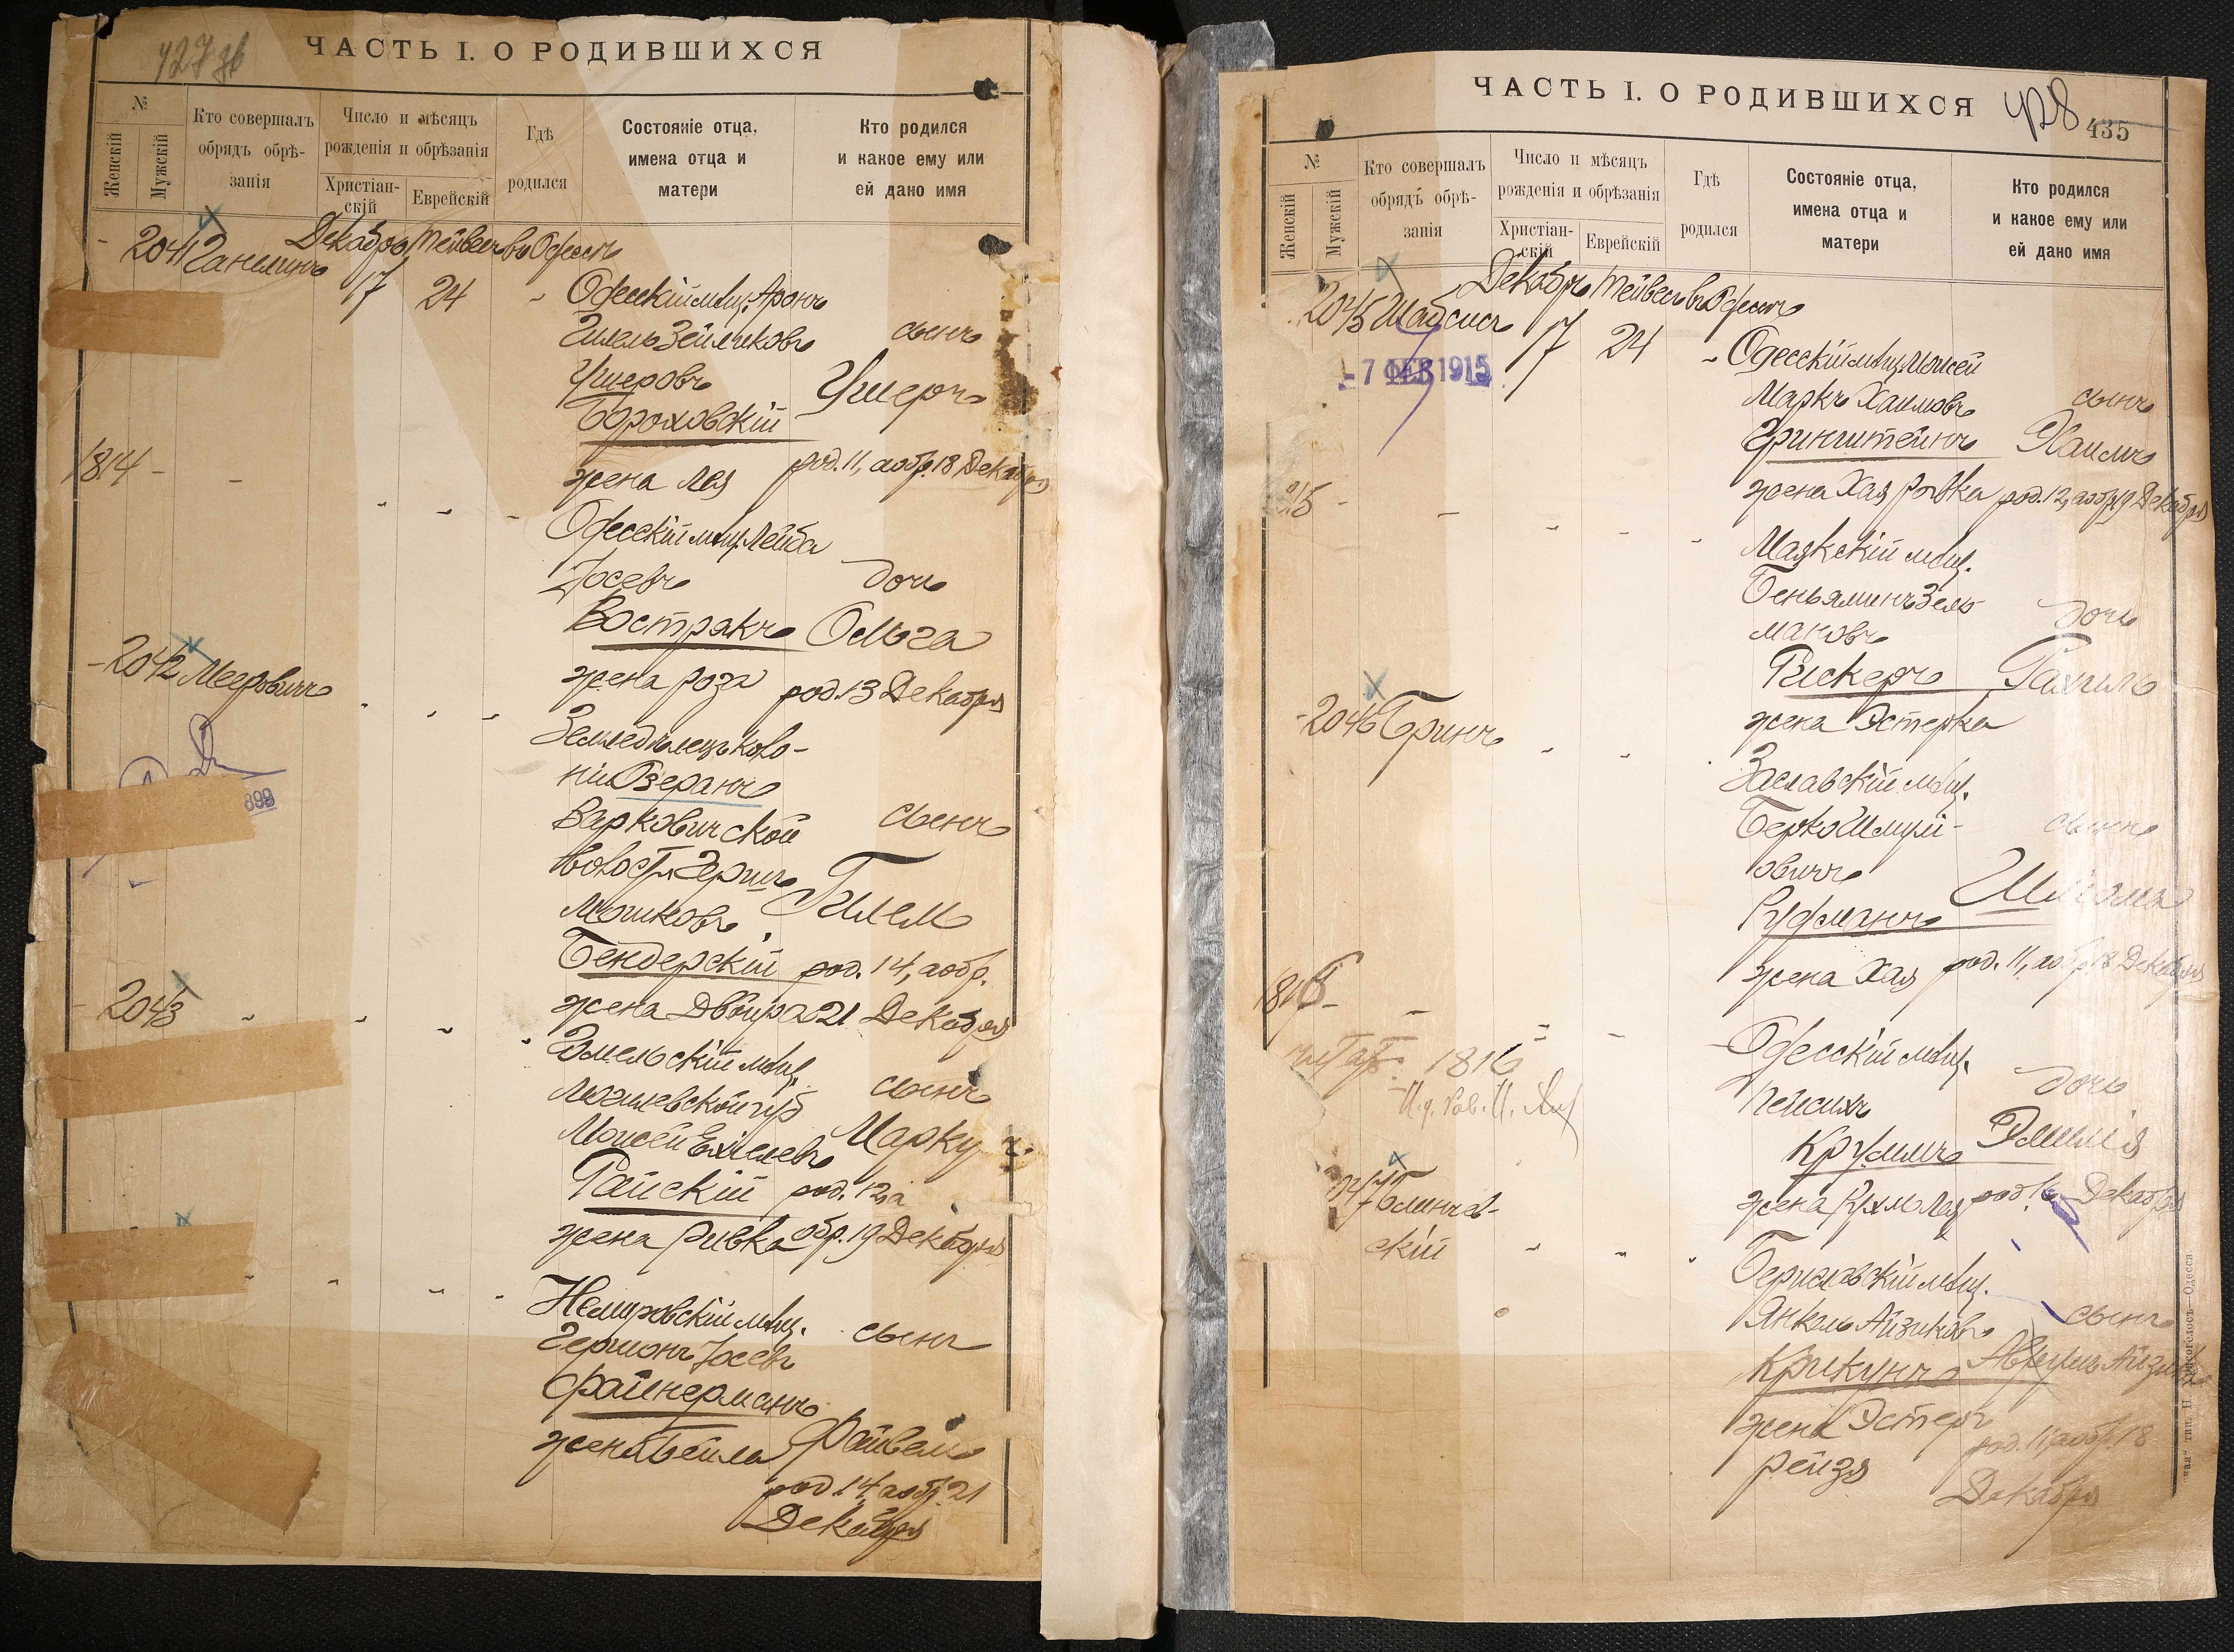 427 зв
ЧАСТЬ I. О РОДИВШИХСЯ
№
Женскій
Мужскій
Кто совершалъ
обрядъ обрѣ-
занія
Число и мѣсяцъ
рожденія и обрѣзанія
Христіан-
скій
Еврейскій
Гдѣ
родился
Состояніе отца,
имена отца и
матери
Кто родился
и какое ему или
ей дано имя
- 2041 Ганелинъ Декабрь Тейвесъ въ Одессѣ
17 24 - Одесскій мѣщ. Аронъ
Гилель Зейликовъ сынъ
Ушеровъ Ушеръ
Бороховскій
жена Лея род. 11, а обр. 18 Декабря
1814 -
Одесскій мѣщ. Лейба
Іосевъ дочь
Вострякъ Ольга
жена Роза род. 13 Декабря
- 2042 Мееровичъ
Земледѣлецъ коло-
ніи Озеранъ
Варковичской сынъ
волости Гершъ
Мошковъ Гилель
Бендерскій род. 14, а обр.
жена Двойра 21 Декабря
899
- 2043
мѣщ.
Могилевской губ сынъ
Моисей Ехіелевъ Маркусъ
Райскій род. 12, а
жена Ривка обр. 19 Декабря
Немировскій мѣщ. сынъ
Гершонъ Іосевъ
Файнерманъ
жена Бейла Файвель
род. 14, а обр. 21
Декабря
ЧАСТЬ I. О РОДИВШИХСЯ
428
435
№
Женскій
Мужскій
Кто совершалъ
обрядъ обрѣ-
занія
Число и мѣсяцъ
рожденія и обрѣзанія
Христіан-
скій
Еврейскій
Гдѣ
родился
Состояніе отца,
имена отца и
матери
Кто родился
и какое ему или
ей дано имя
2045 Шабсисъ Декабрь Тейвесъ въ Одессѣ
17 24 - Одесскій мѣщ. Моисей
- 7 ФЕВ 1915
Маркъ Хаимовъ сынъ
Гринштейнъ Хаимъ
жена Хая Ривка род. 12, а обр. 19 Декабря
15 -
Маякскій мѣщ.
Беньяминъ Зель-
мановъ дочь
Рискеръ Рахиль
жена Эстерка
- 2046 Бринъ
Заславскій мѣщ.
Берко Шмуй- сынъ
овичъ
Руфманъ Шлема
жена Хая род. 11, а обр. 18 Декабря
1816 -
читать: 1816
Одесскій мѣщ.
Пейсахъ дочь
Крумъ Эмилія
жена Рухль Лея род. 16 Декабря
2047 Блинчев-
скій
Бериславскій мѣщ.
Янкель Айзиковъ сынъ
Крикунъ Аврумъ Айзикъ
жена Эстеръ род. 11, а обр. 18
Рейзя Декабря